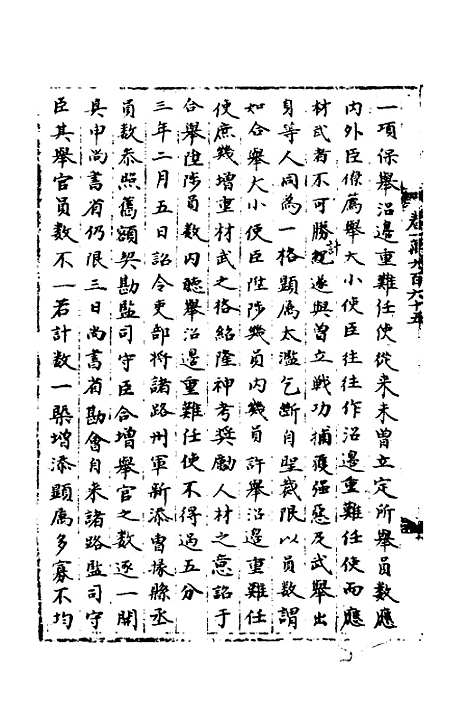 一項保舉沿邊重難任使從来未曾立定所舉員數應
内外臣僚薦舉大小使臣往往作沿邊重難任使而應
材武者不可勝計遂與曽立戦功捕獲强惡及武舉出
身等人同為一格顯屬太濫乞断自聖裁限以員數謂
如合舉大小使臣陞陟幾員内幾員許舉沿邉重難任
使庶幾增重材武之格紹隆神考奨勵人材之意詔于
合舉陞陟員數内聽舉沿邊重難任使不得過五分
三年二月五日詔令吏部将諸路州軍新添曹掾縣丞
員数叅照舊額契勘監司守臣合增舉官之数逐一開
具申尚書省仍限三日尚書省勘會自来諸路監司守
臣其舉官員数不一若計數一槩增添顯屬多寡不均
卷一萬九百六十五